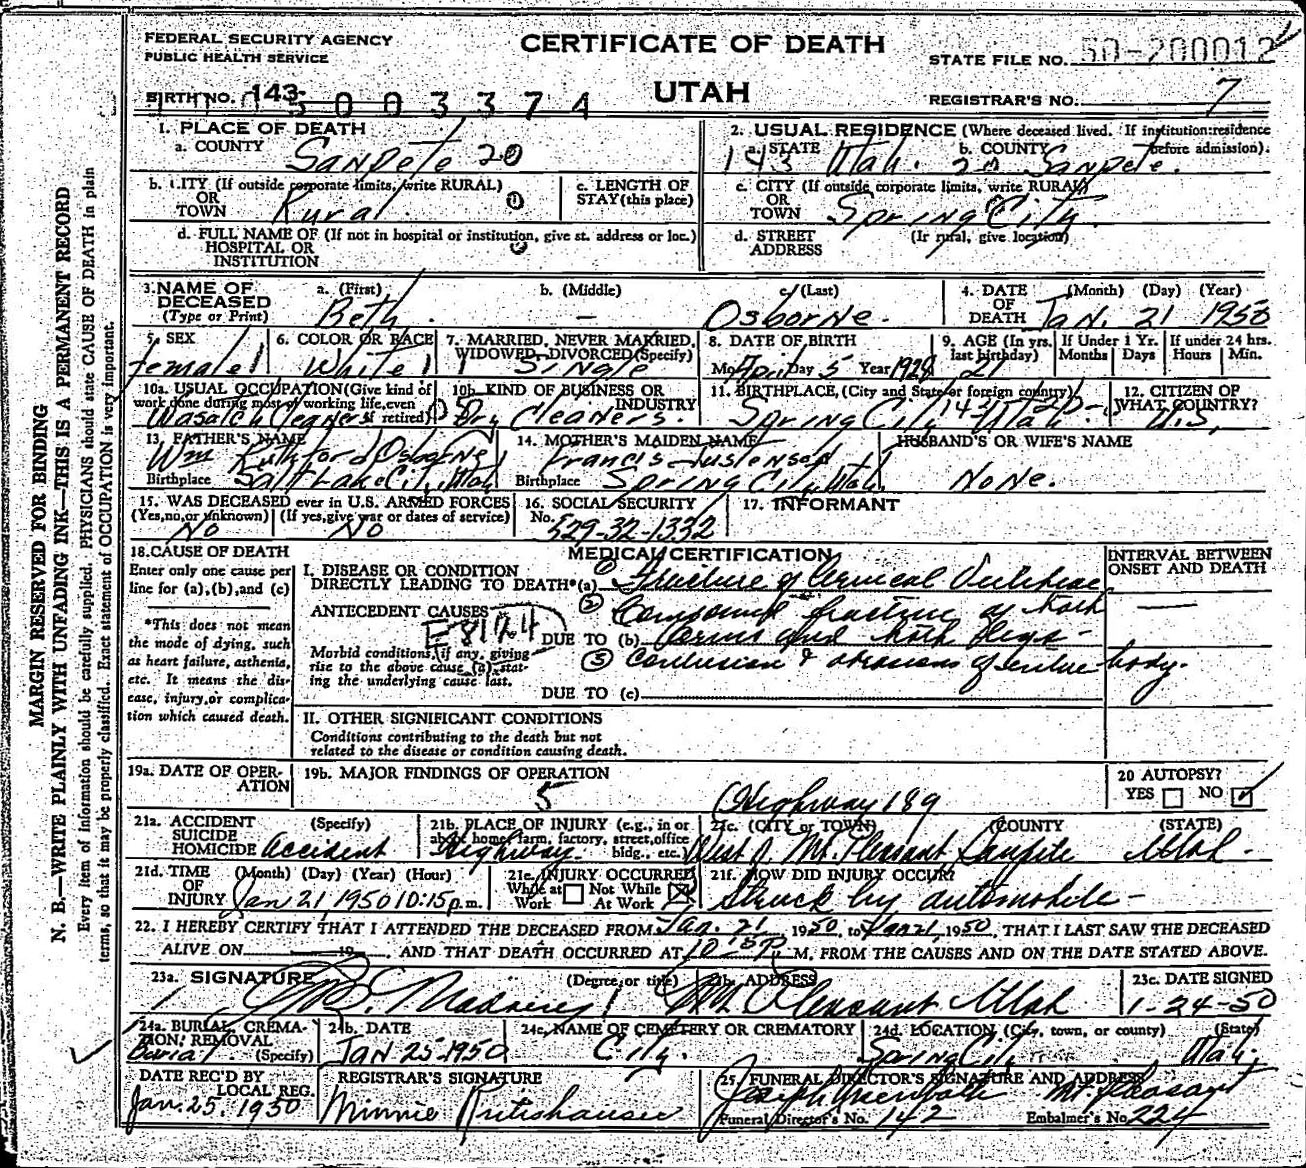 FEDERAL SECURITY AGENCY
PUBLIC HEALTH SERVICE
CERTIFICATE OF DEATH
UTAH
STATE FILE NO. 50-200012
BIRTH NO. 143-
003374
REGISTRAR'S NO. 7
1. PLACE OF DEATH
a. COUNTY Sanpete 20
2. USUAL RESIDENCE (Where deceased lived. If institution: residence before admission).
a. STATE 143 Utah. 20 b. COUNTY Sanpete.
b. CITY (If outside corporate limits, write RURAL) OR TOWN Rural
c. LENGTH OF STAY (this place)
c. CITY (If outside corporate limits, write RURAL) OR TOWN Spring City.
d. FULL NAME OF (If not in hospital or institution, give st. address or loc.) HOSPITAL OR INSTITUTION
d. STREET ADDRESS (Ir rural, give location)
3. NAME OF DECEASED (Type or Print)
a. (First) Beth.
b. (Middle) –
c. (Last) Osborne.
4. DATE OF DEATH (Month) (Day) (Year) Jan. 21 1950
5. SEX female 1
6. COLOR OR RACE White 1
7. MARRIED, NEVER MARRIED, WIDOWED, DIVORCED (Specify) Single
8. DATE OF BIRTH Mo. April Day 5 Year 1928
9. AGE (In yrs. last birthday) 21
If Under 1 Yr. Months Days
If under 24 hrs. Hours Min.
10a. USUAL OCCUPATION (Give kind of work done during most of working life, even if retired) Wasatch Cleaners
10b. KIND OF BUSINESS OR INDUSTRY Dry Cleaners.
11. BIRTHPLACE, (City and State or foreign country) Spring City 143 Utah
12. CITIZEN OF WHAT COUNTRY? U.S.
13. FATHER'S NAME Wm Osborne
Birthplace Salt Lake City, Utah
14. MOTHER'S MAIDEN NAME Francis Justensen
Birthplace Spring City, Utah.
HUSBAND'S OR WIFE'S NAME
None.
15. WAS DECEASED ever in U.S. ARMED FORCES
(Yes, no, or unknown) No
(If yes, give war or dates of service) No
16. SOCIAL SECURITY No. 529-32-1332
17. INFORMANT
18. CAUSE OF DEATH
Enter only one cause per line for (a), (b), and (c)
*This does not mean the mode of dying, such as heart failure, asthenia, etc. It means the disease, injury, or complication which caused death.
MEDICAL CERTIFICATION
INTERVAL BETWEEN ONSET AND DEATH
I. DISEASE OR CONDITION DIRECTLY LEADING TO DEATH* (a) ① Fracture of Cervical Vertebrae
ANTECEDENT CAUSES
② Compound fracture of both
E817.4
DUE TO (b) arms and both legs -
Morbid conditions, if any, giving rise to the above cause (a), stating the underlying cause last.
③ Contusion & abrasions of entire body.
DUE TO (c)
II. OTHER SIGNIFICANT CONDITIONS
Conditions contributing to the death but not related to the disease or condition causing death.
19a. DATE OF OPERATION
19b. MAJOR FINDINGS OF OPERATION
5
Highway 189
20 AUTOPSY?
YES NO
21a. ACCIDENT SUICIDE HOMICIDE (Specify) Accident
21b. PLACE OF INJURY (e.g., in or about home, farm, factory, street, office bldg., etc.) Highway
21c. (CITY or TOWN) (COUNTY) (STATE)
West of Mt. Pleasant, Sanpete Utah.
21d. TIME OF INJURY (Month) (Day) (Year) (Hour) Jan 21, 1950 10:15 p.m.
21e. INJURY OCCURRED While at Work Not While At Work
21f. HOW DID INJURY OCCUR? Struck by automobile -
22. I HEREBY CERTIFY THAT I ATTENDED THE DECEASED FROM Jan. 21, 1950, to Jan 21, 1950, THAT I LAST SAW THE DECEASED
ALIVE ON 19, AND THAT DEATH OCCURRED AT 10 15 P. M, FROM THE CAUSES AND ON THE DATE STATED ABOVE.
23a. SIGNATURE (Degree or title)
Madsen
23b. ADDRESS Mt. Pleasant Utah
23c. DATE SIGNED 1-24-50
24a. BURIAL, CREMATION, REMOVAL (Specify) Burial
24b. DATE Jan 25-1950
24c. NAME OF CEMETERY OR CREMATORY City.
24d. LOCATION, (City, town, or county) (State) Spring City Utah.
DATE REC'D BY LOCAL REG. Jan. 25, 1950
REGISTRAR'S SIGNATURE Minnie
25. FUNERAL DIRECTOR'S SIGNATURE AND ADDRESS
Joseph Mt. Pleasant
Funeral Director's No. 142
Embalmer's No. 224
MARGIN RESERVED FOR BINDING
N. B.—WRITE PLAINLY WITH UNFADING INK—THIS IS A PERMANENT RECORD
Every item of information should be carefully supplied. PHYSICIANS should state CAUSE OF DEATH in plain
terms, so that it may be properly classified. Exact statement of OCCUPATION is very important.